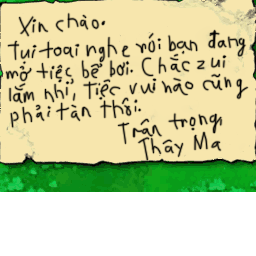 Xin chào.
Tui toai nghe nói bạn đang
mở tiệc bể bơi. Chắc zui
lắm nhỉ, tiệc vui nào cũng
phải tàn thôi.
Trân trọng,
Thây Ma